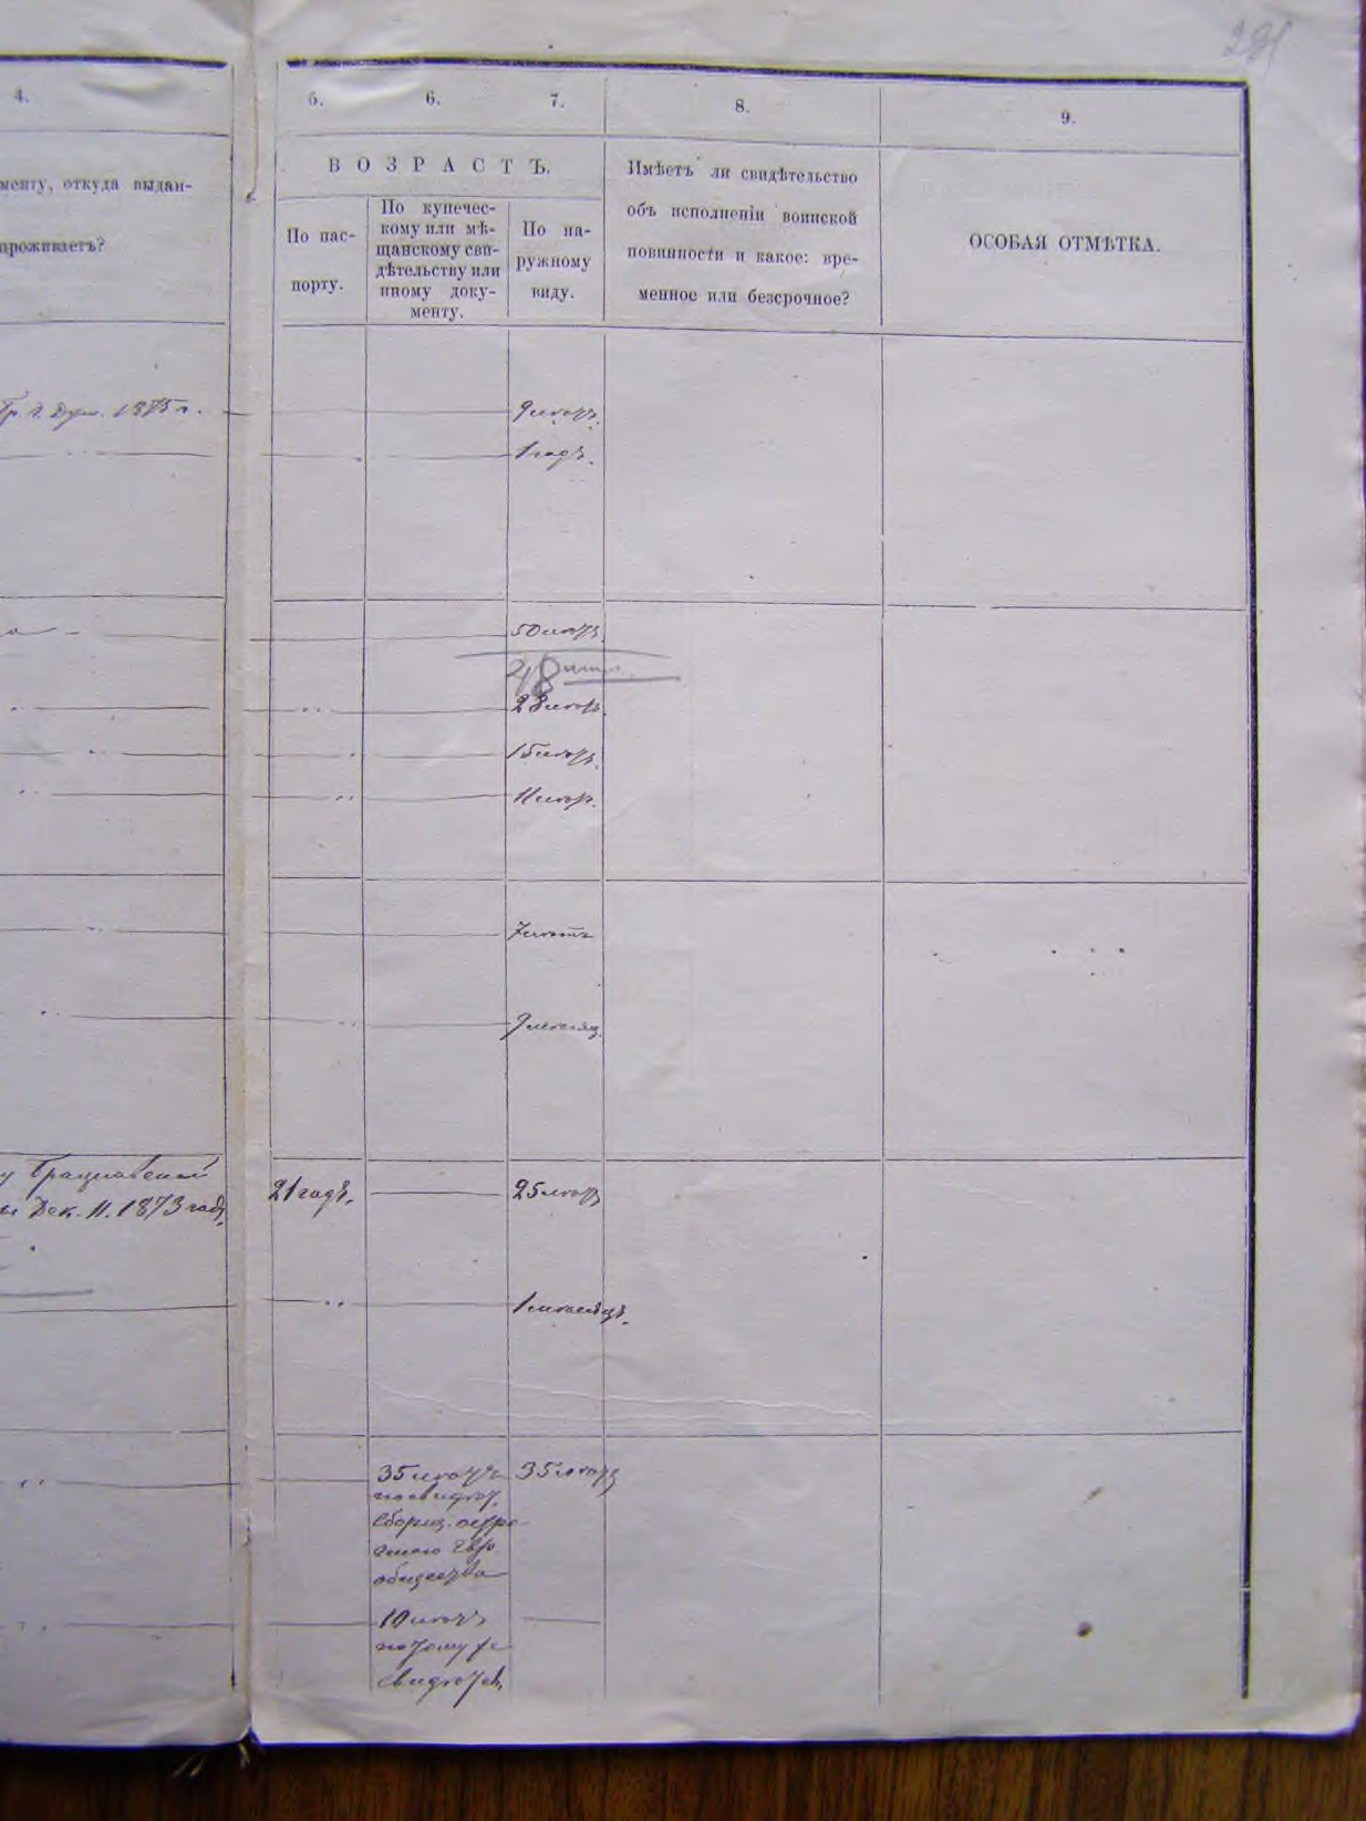 4.
менту, откуда выдан-
проживаетъ?
5. 6. 7. 8. 9.
ВОЗРАСТЪ.
По пас-
порту.
По купечес-
кому или мѣ-
щанскому сви-
дѣтельству или
иному доку-
менту.
По на-
ружному
виду.
Имѣетъ ли свидѣтельство
объ исполненіи воинской
повинности и какое: вре-
менное или безсрочное?
ОСОБАЯ ОТМѢТКА.
1875 г. 9 лѣтъ.
1 годъ.
50 лѣтъ
48 лѣтъ
28 лѣтъ.
15 лѣтъ.
11 лѣтъ.
7 лѣтъ
9 месяц.
Брацлавской
Дек. 11. 1873 года.
21 годъ. 25 лѣтъ
1 мѣсяцъ.
35 лѣтъ 35 лѣтъ
по свидѣт.
общества
10 лѣтъ
по тому же
свидѣтел.